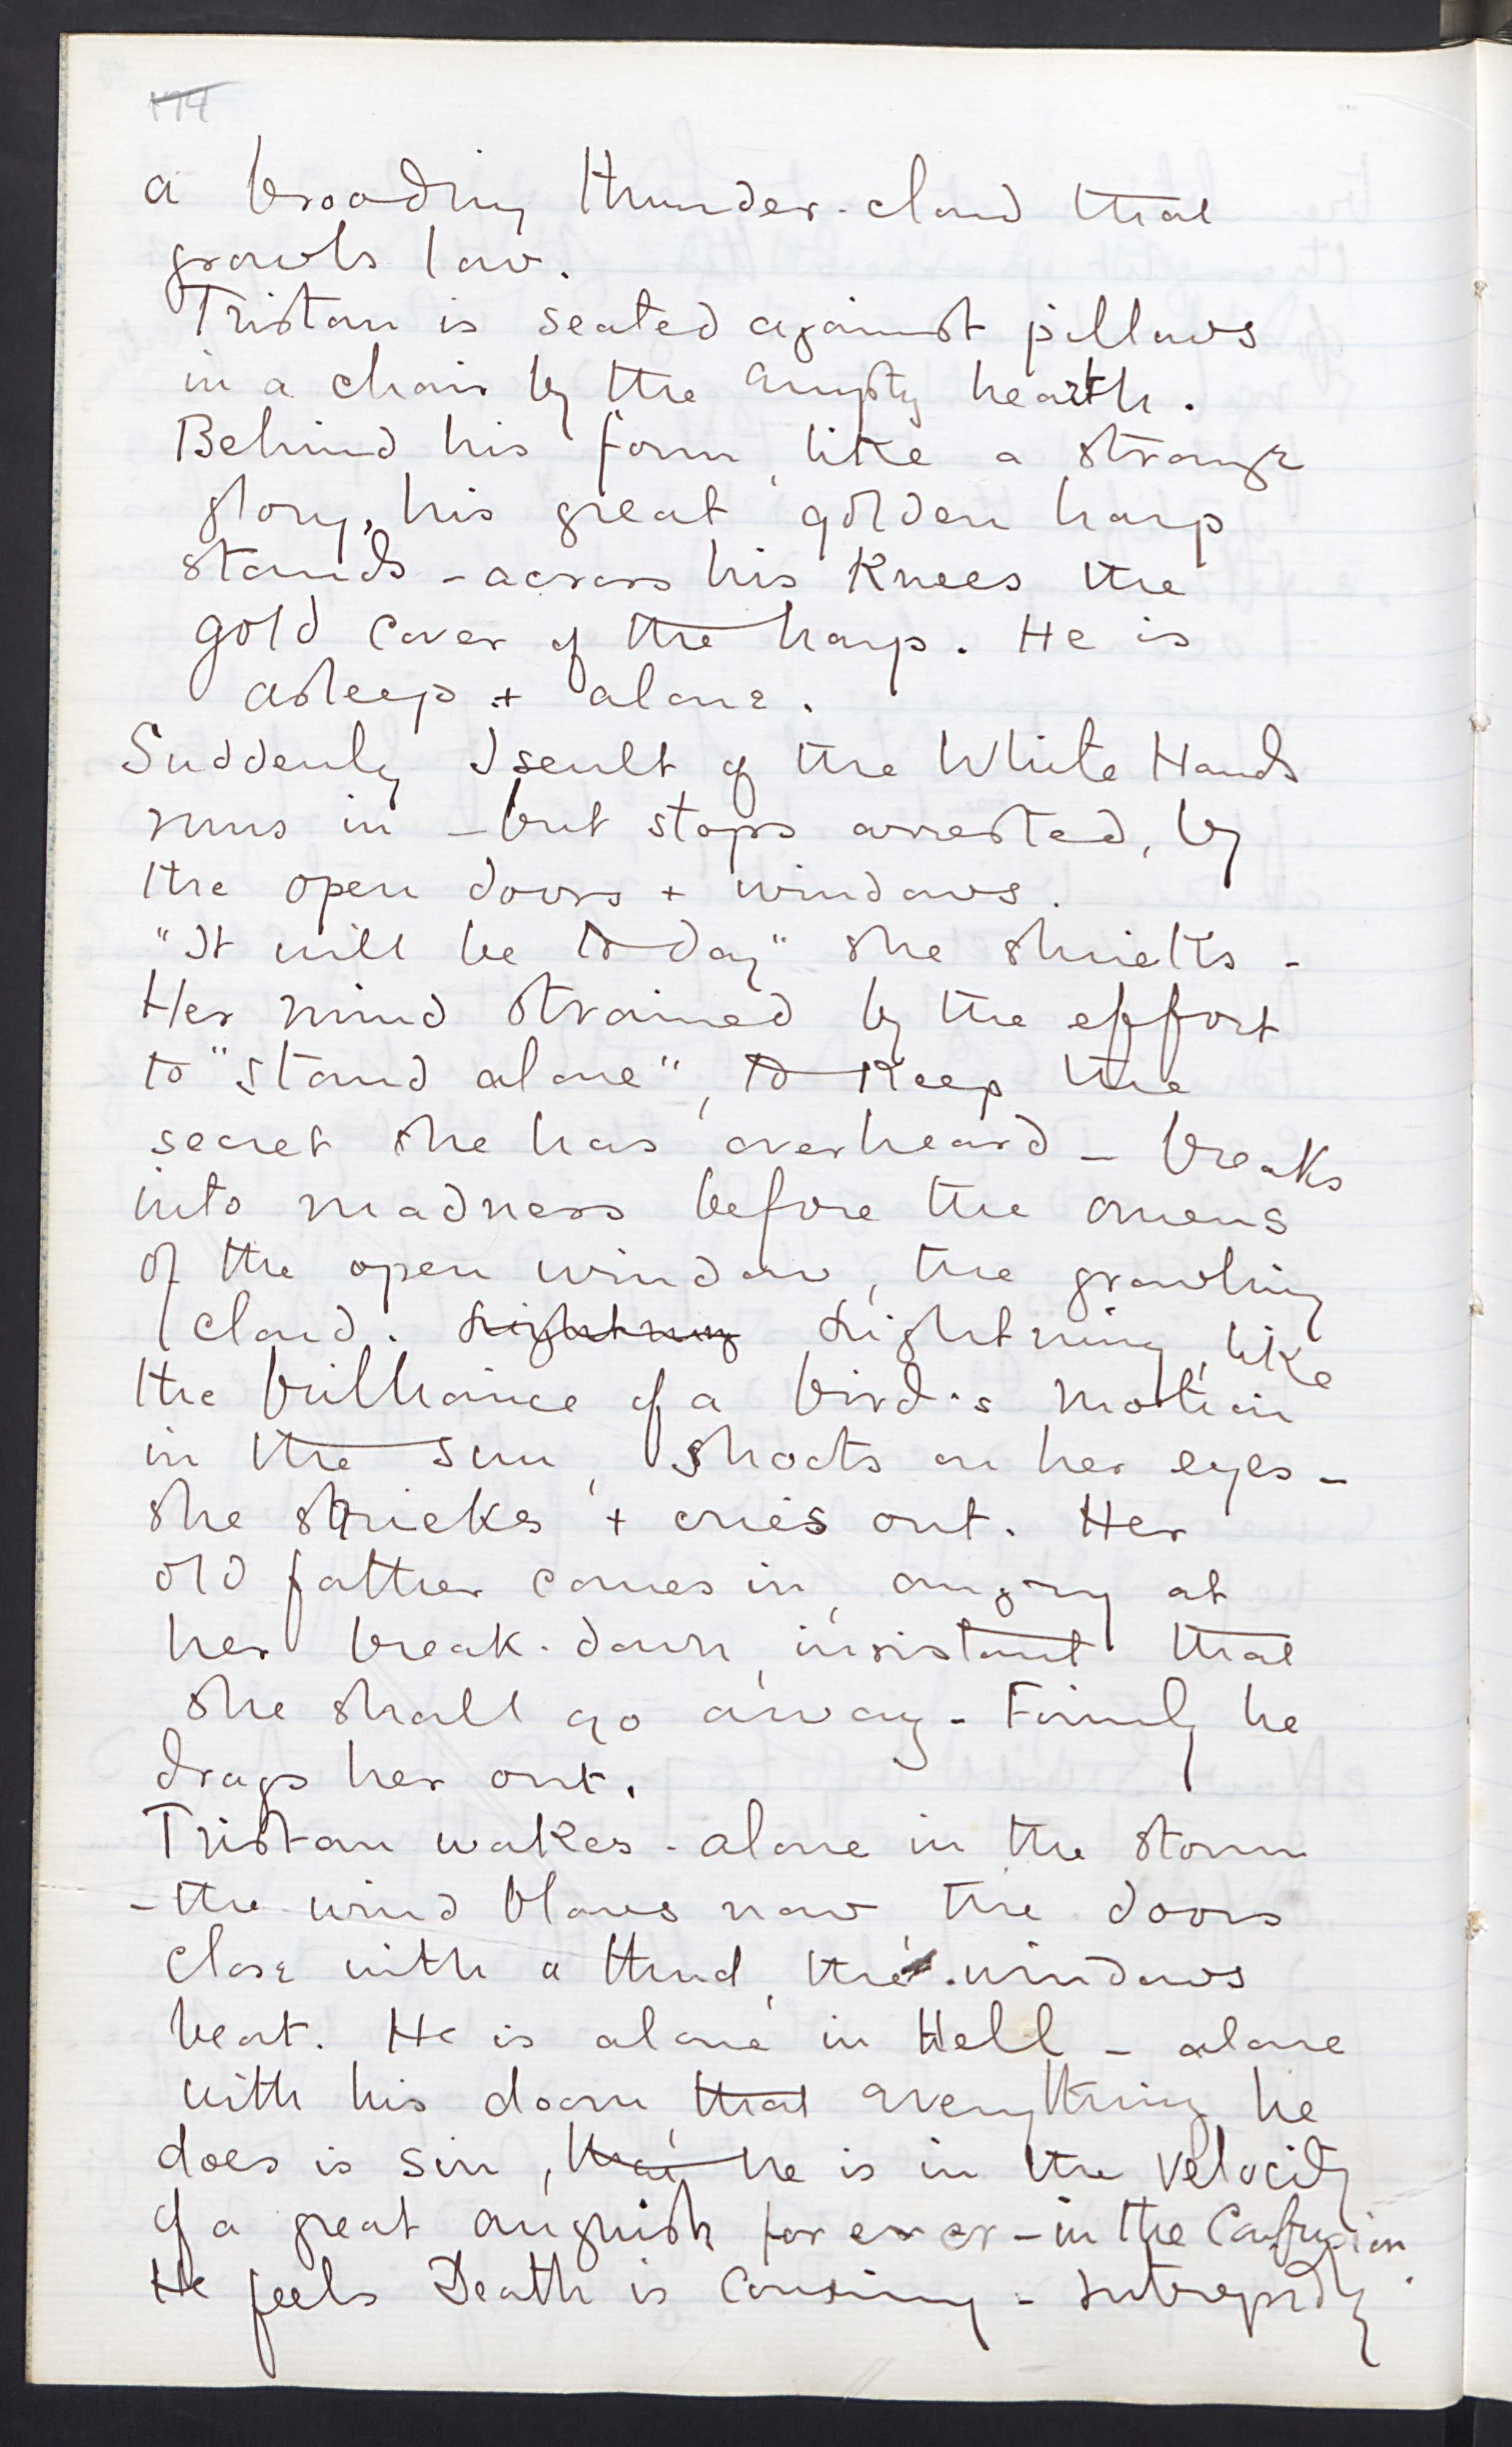 174
a brooding thunder-cloud that
growls low.
Tristan is seated against pillows
in a chair by the empty hearth.
Behind his form, like a strange
glory, his great golden harp
stands - across his knees the
gold cover of the harp. He is
asleep + alone.
Suddenly Iseult of the White Hands
runs in - but stops arrested, by
the open doors + windows.
"It will be to day" she shrieks -
Her mind strained by the effort
to "stand alone", to keep the
secret she has overheard - breaks
into madness before the omens
of the open window, the growling
cloud. Lightning Lightning, like
the brilliance of a bird's motion
in the sun, shoots on her eyes -
she shrieks + cries out. Her
old father comes in, angry at
her break-down, insistant that
she shall go away - Firmly he
drags her out.
Tristan wakes - alone in the storm
- the wind blows now the doors
close with a thud, the windows
beat. He is alone in Hell - alone
with his doom, that everything he
does is sin, that he is in the velocity
of a great anguish for ever - in the Confusion.
He feels Death is coming - Intrepidly